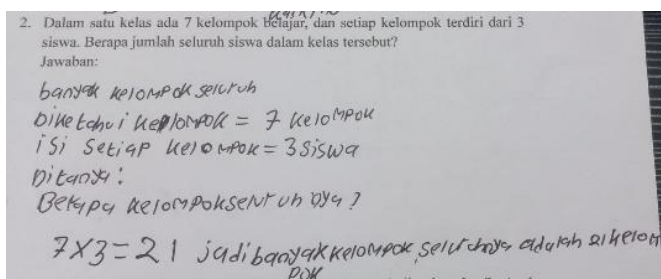 2. Dalam satu kelas ada 7 kelompok belajar, dan setiap kelompok terdiri dari 3
siswa. Berapa jumlah seluruh siswa dalam kelas tersebut?
Jawaban:
banyak kelompok seluruh
Diketahui kelompok = 7 kelompok
isi setiap kelompok = 3 siswa
Ditanya:
Berapa kelompok seluruhnya?
7x3=21 jadi banyak kelompok seluruhnya adalah 21 kelom
pok